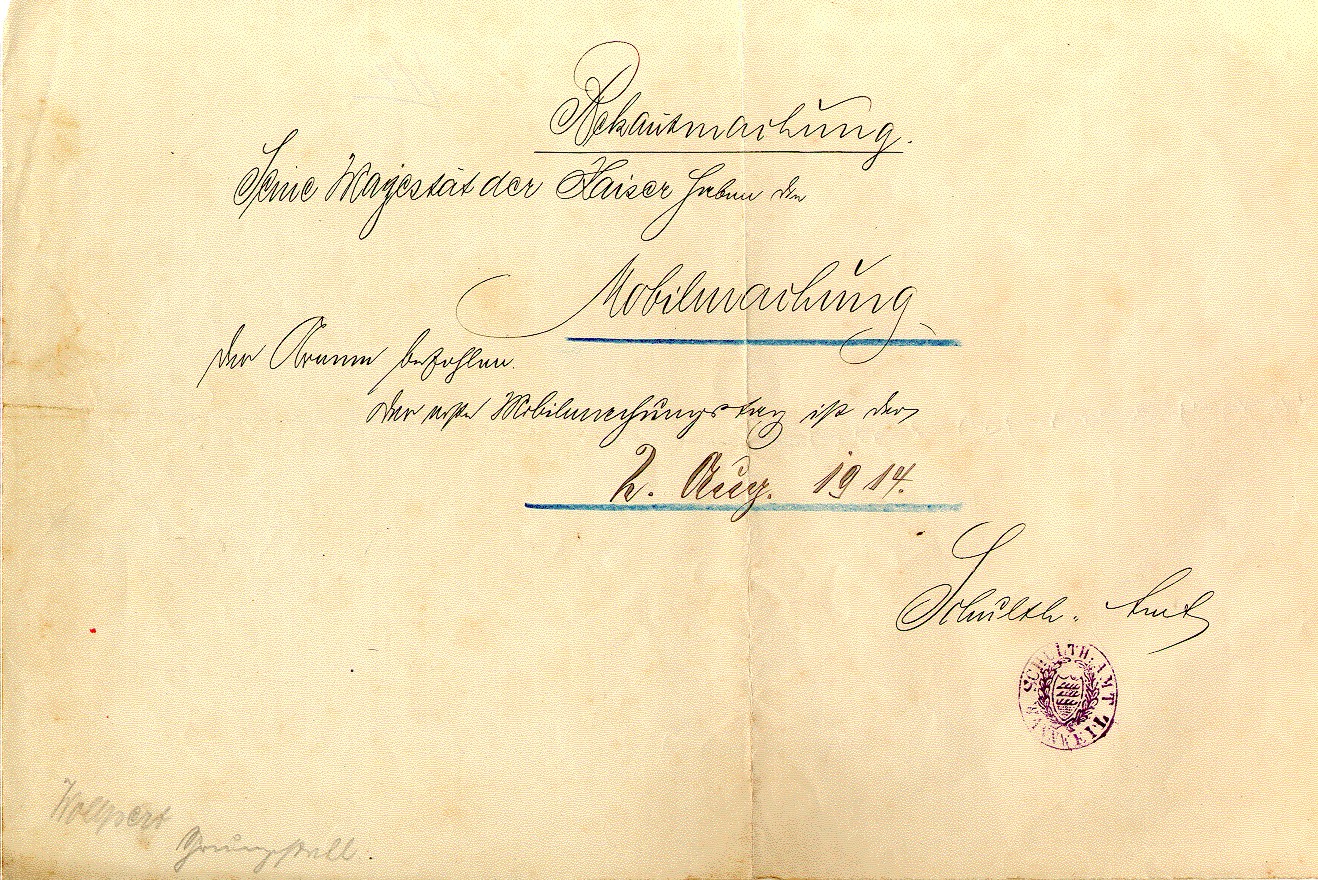 Bekantmachung.
Seine Majestät der Kaiser haben die
Mobilmachung
der Armee befohlen.
Der erste Mobilmachungstag ist der
2. Aug. 1914.
Schulth. Amt
SCHULTH. AMT